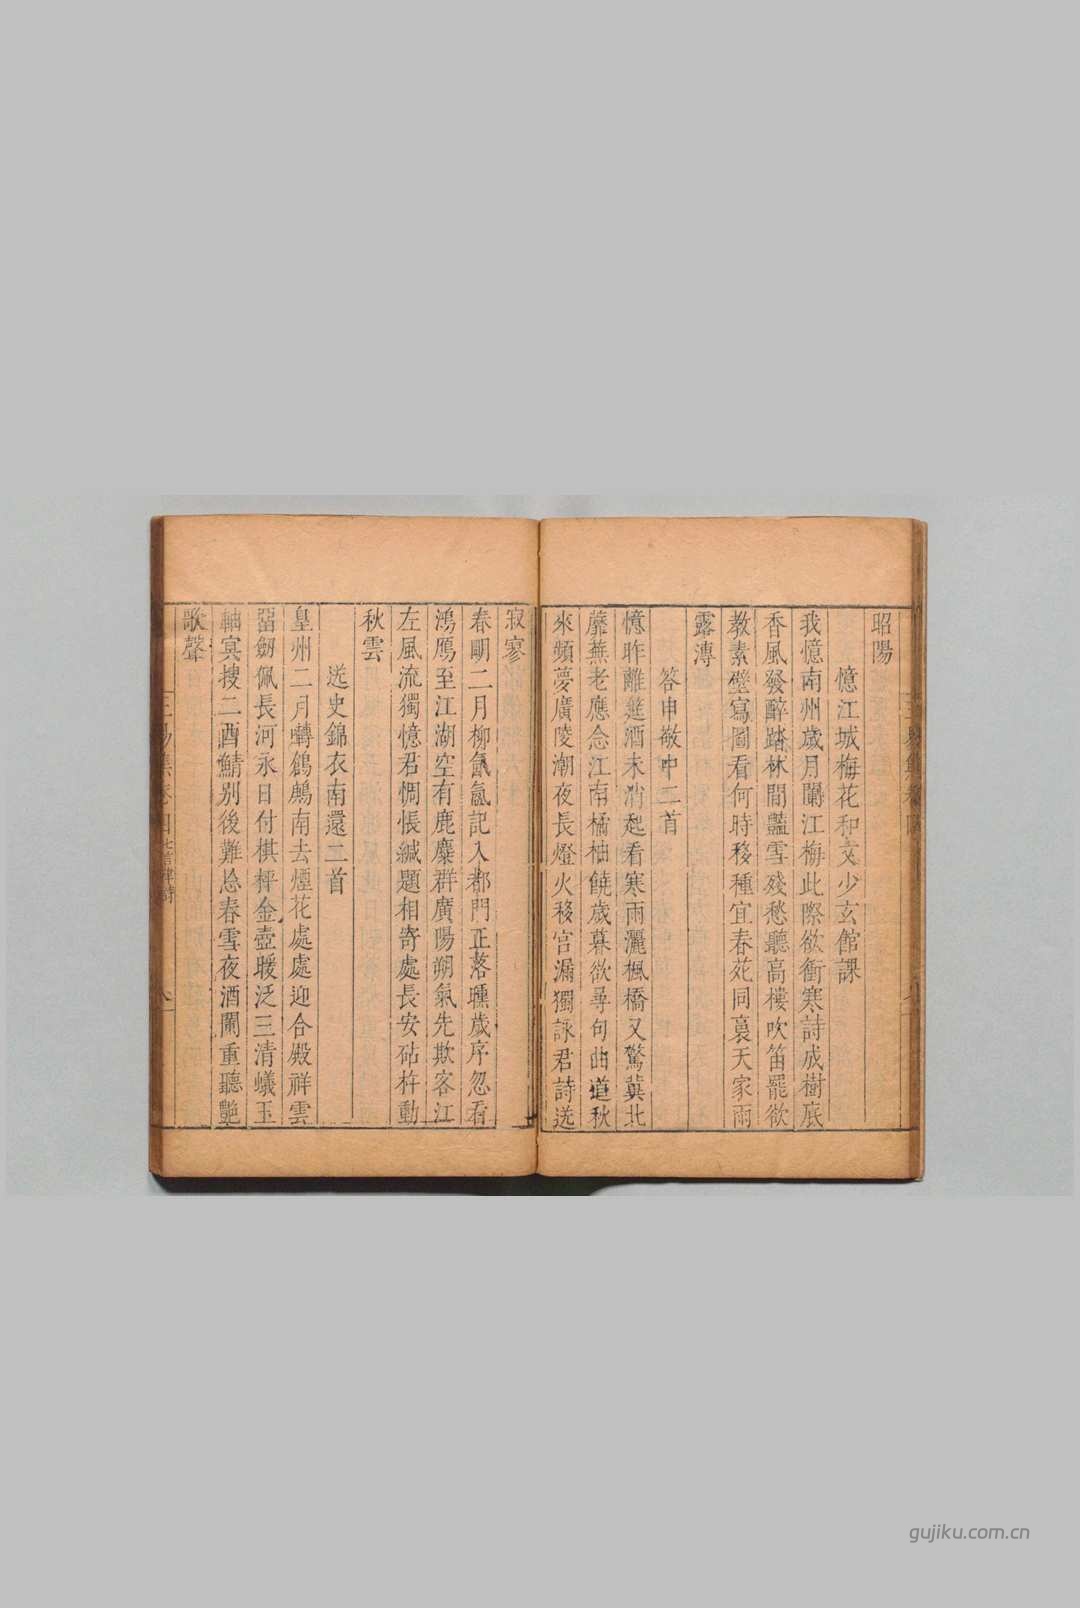 昭陽
憶江城梅花和文少玄館課
我憶南州歲月闌江梅此際欲衝寒詩成樹底
香風發醉踏林間豔雪殘愁聽高樓吹笛罷欲
教素壁寫圖看何時移種宜春苑同裛天家雨
露漙
答申敬中二首
憶昨離筵酒未消起看寒雨灑楓橋又驚冀北
蘼蕪老應念江南橘柚饒歲暮欲尋句曲道秋
來頻夢廣陵潮夜長燈火移宮漏獨詠君詩送
寂寥
春明二月柳氤氳記入都門正落曛歲序忽看
鴻鴈至江湖空有鹿麋群廣陽朔氣先欺客江
左風流獨憶君惆悵緘題相寄處長安砧杵動
秋雲
送史錦衣南還二首
皇州二月囀鶬鶊南去煙花處處迎合殿祥雲
留劒佩長河永日付棋枰金壺暖泛三清蟻玉
軸冥搜二酉鯖別後難忘春雪夜酒闌重聽艶
歌聲
三易集卷四 七言律詩
gujiku.com.cn